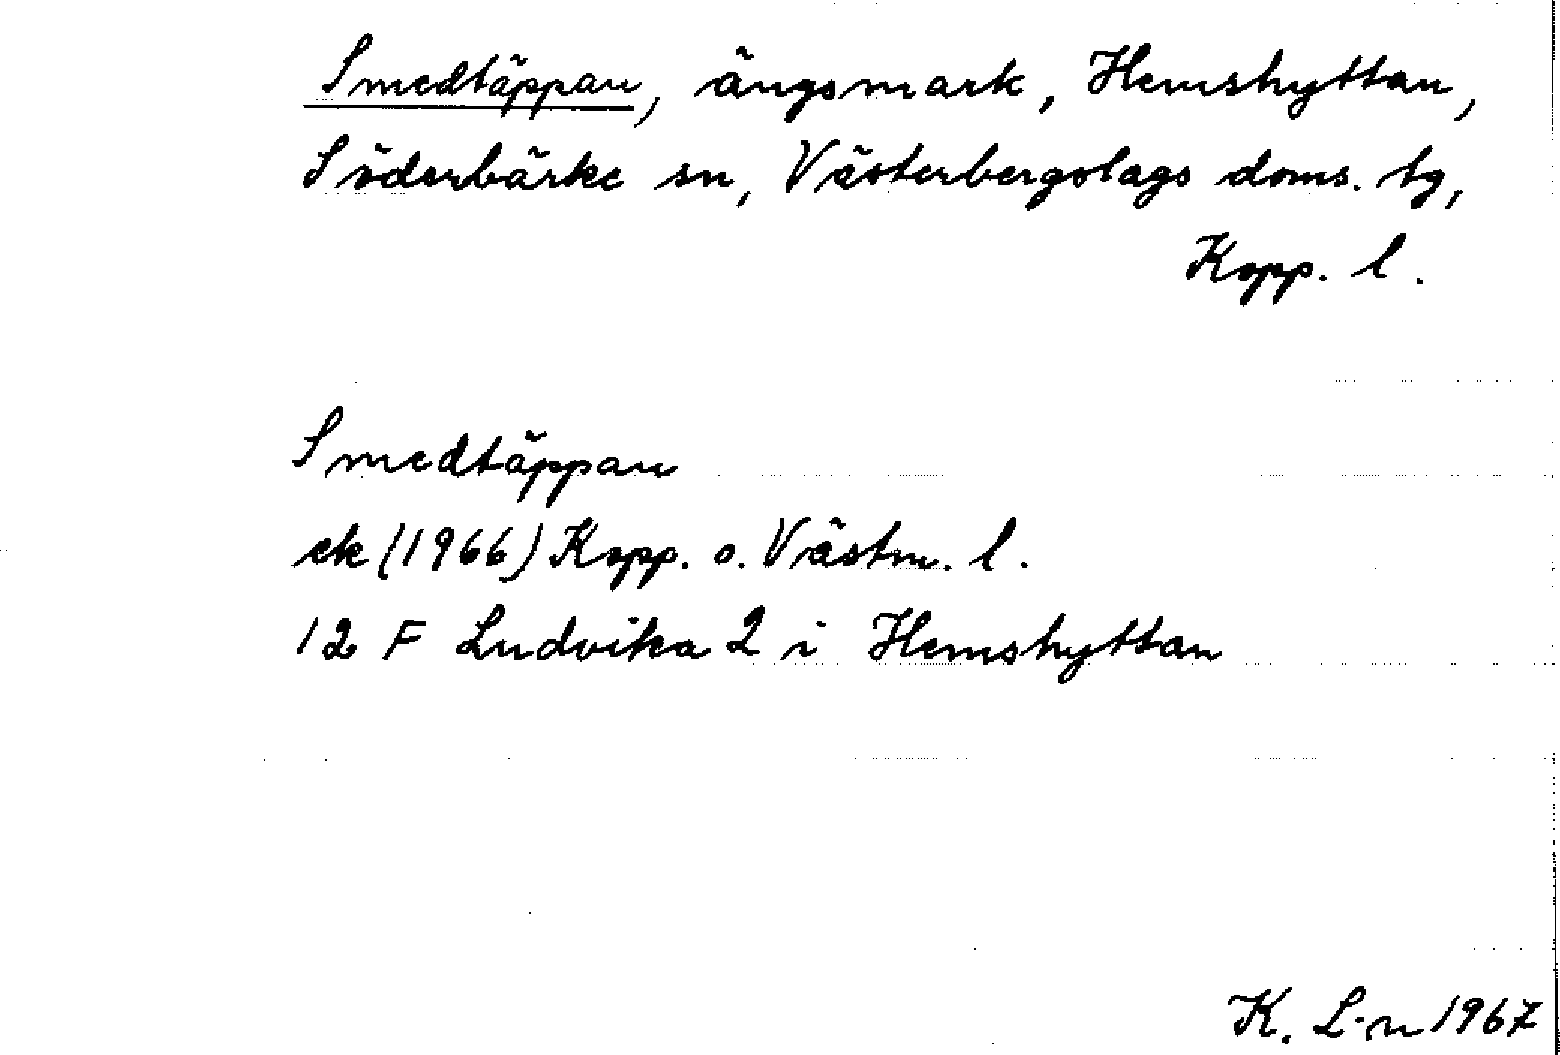 Smedtäppan, ängsmark, Hemshyttan,
Söderbärke sn, Västerbergslags doms. tg,
Kopp. l.
Smedtäppan
ek (1966) Kopp. o. Västm. l.
12 F Ludvika 2 i Hemshyttan
K. L-n 1967